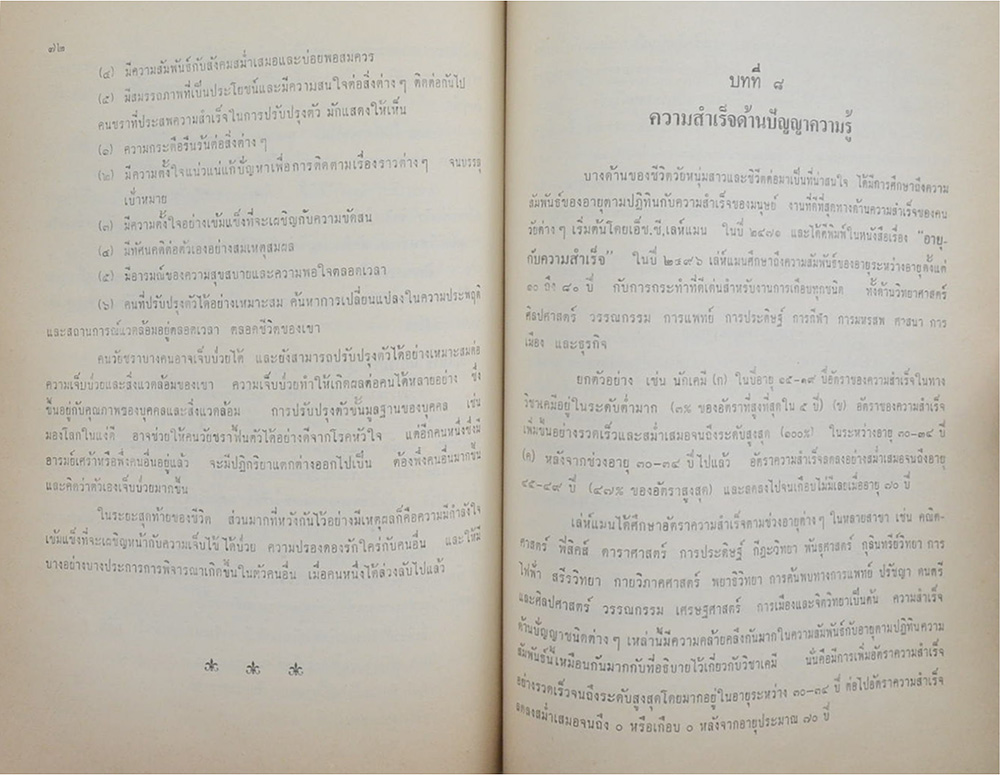 ๗๒
(๔) มีความสัมพันธ์กับสังคมสม่ำเสมอและบ่อยพอสมควร
(๕) มีสมรรถภาพที่เป็นประโยชน์และมีความสนใจต่อสิ่งต่าง ๆ ติดต่อกันไป
คนชราที่ประสพความสำเร็จในการปรับปรุงตัว มักแสดงให้เห็น
(๑) ความกระตือรืนรันต่อสิ่งต่าง ๆ
(๒) มีความตั้งใจแน่วแน่แก้ปัญหาเพื่อการติดตามเรื่องราวต่าง ๆ จนบรรลุ
เป้าหมาย
(๓) มีความตั้งใจอย่างเข้มแข็งที่จะเผชิญกับความขัดสน
(๔) มีทัศนคติต่อตัวเองอย่างสมเหตุสมผล
(๕) มีอารมณ์ของความสุขสบายและความพอใจตลอดเวลา
(๖) คนที่ปรับปรุงตัวได้อย่างเหมาะสม ค้นหาการเปลี่ยนแปลงในความประพฤติ
และสถานการณ์แวดล้อมอยู่ตลอดเวลา ตลอดชีวิตของเขา
คนวัยชราบางคนอาจเจ็บป่วยได้ และยังสามารถปรับปรุงตัวได้อย่างเหมาะสมต่อ
ความเจ็บป่วยและสิ่งแวดล้อมของเขา ความเจ็บป่วยทำให้เกิดผลต่อคนได้หลายอย่าง ซึ่ง
ขึ้นอยู่กับคุณภาพรของบุคคลและสิ่งแวดล้อม การปรับปรุงตัวขั้นมูลฐานของบุคคล เช่น
มองโลกในแง่ดี อาจช่วยให้คนวัยชราฟื้นตัวได้อย่างดีจากโรคหัวใจ แต่อีกคนหนึ่งซึ่งมี
อารมย์เศร้าหรือพึ่งคนอื่นอยู่แล้ว จะมีปฏิกริยาแตกต่างออกไปเป็น ต้องพึ่งคนอื่นมากขึ้น
และคิดว่าตัวเองเจ็บป่วยมากขึ้น
ในระยะสุดท้ายของชีวิต ส่วนมากที่หวังกันไว้อย่างมีเหตุผลก็คือความมีกำลังใจ
เข้มแข็งที่จะเผชิญหน้ากับความเจ็บไข้ได้ป่วย ความปรองดองรักใคร่กับคนอื่น และให้มี
บางอย่างบางประการการพิจารณาเกิดขึ้นในตัวคนอื่น เมื่อคนหนึ่งได้ล่วงลับไปแล้ว
บทที่ ๘
ความสำเร็จด้านปัญญาความรู้
บางด้านของชีวิตวัยหนุ่มสาวและชีวิตต่อมาเป็นที่น่าสนใจ ได้มีการศึกษาถึงความ
สัมพันธ์ของอายุตามปฏิทินกับความสำเร็จของมนุษย์ งานที่ดีที่สุดทางด้านความสำเร็จของคน
วัยต่าง ๆ เริ่มต้นโดยเอ็ช.ซี.เลห์แมน ในปี ๒๔๗๑ และได้ตีพิมพ์ในหนังสือเรื่อง “อายุ-
กับความสำเร็จ” ในปี ๒๔๙๖ เล่ห์แมนศึกษาถึงความสัมพันธ์ของอายุระหว่างอายุตั้งแต่
๑๐ ถึง ๘๐ ปี กับการกระทำที่ดีเด่นสำหรับงานการเกือบทุกชนิด ทั้งด้านวิทยาศาสตร์
ศิลปศาสตร์ วรรณกรรม การแพทย์ การประดิษฐ์ การกีฬา การมหรสพ ศาสนา การ
เมือง และธุรกิจ
ยกตัวอย่าง เช่น นักเคมี (ก) ในปีอายุ ๑๕-๑๙ ปีอัตราของความสำเร็จในทาง
วิชาเคมีอยู่ในระดับต่ำมาก (๓% ของอัตราที่สูงที่สุดใน ๕ ปี) (ข) อัตราของความสำเร็จ
เพิ่มขึ้นอย่างรวดเร็วและสม่ำเสมอจนถึงระดับสูงสุด (๑๐๐%) ในระหว่างอายุ ๓๐-๓๔ ปี
(ค) หลังจากช่วงอายุ ๓๐-๓๔ ปีไปแล้ว อัตราความสำเร็จลดลงอย่างสม่ำเสมอจนถึงอายุ
๔๕-๔๙ ปี (๔๗% ของอัตราสูงสุด) และลดลงไปจนเกือบไม่มีเลยเมื่ออายุ ๗๐ ปี
เล่ห์แมนได้ศึกษาอัตราความสำเร็จตามช่วงอายุต่าง ๆ ในหลายสาขา เช่น คณิต-
ศาสตร์ ฟิสิคส์ ดาราศาสตร์ การประดิษฐ์ กีฏะวิทยา พันธุศาสตร์ กุลินทรีย์วิทยา การ
ไฟฟ้า สรีรวิทยา กายวิภาคศาสตร์ พยาธิวิทยา การค้นพบทางการแพทย์ ปรัชญา ดนตรี
และศิลปศาสตร์ วรรณกรรม เศรษฐศาสตร์ การเมืองและจิตวิทยาเป็นต้น ความสำเร็จ
ด้านปัญญาชนิดต่าง ๆ เหล่านี้มีความคล้ายคลึงกันมากในความสัมพันธ์กับอายุตามปฏิทินความ
สัมพันธ์นี้เหมือนกันมากกับที่อธิบายไว้เกี่ยวกับวิชาเคมี นั่นคือมีการเพิ่มอัตราความสำเร็จ
อย่างรวดเร็วจนถึงระดับสูงสุดโดยมากอยู่ในอายุระหว่าง ๓๐-๓๔ ปี ต่อไปอัตราความสำเร็จ
ลดลงสม่ำเสมอจนถึง ๐ หรือเกือบ ๐ หลังจากอายุประมาณ ๗๐ ปี